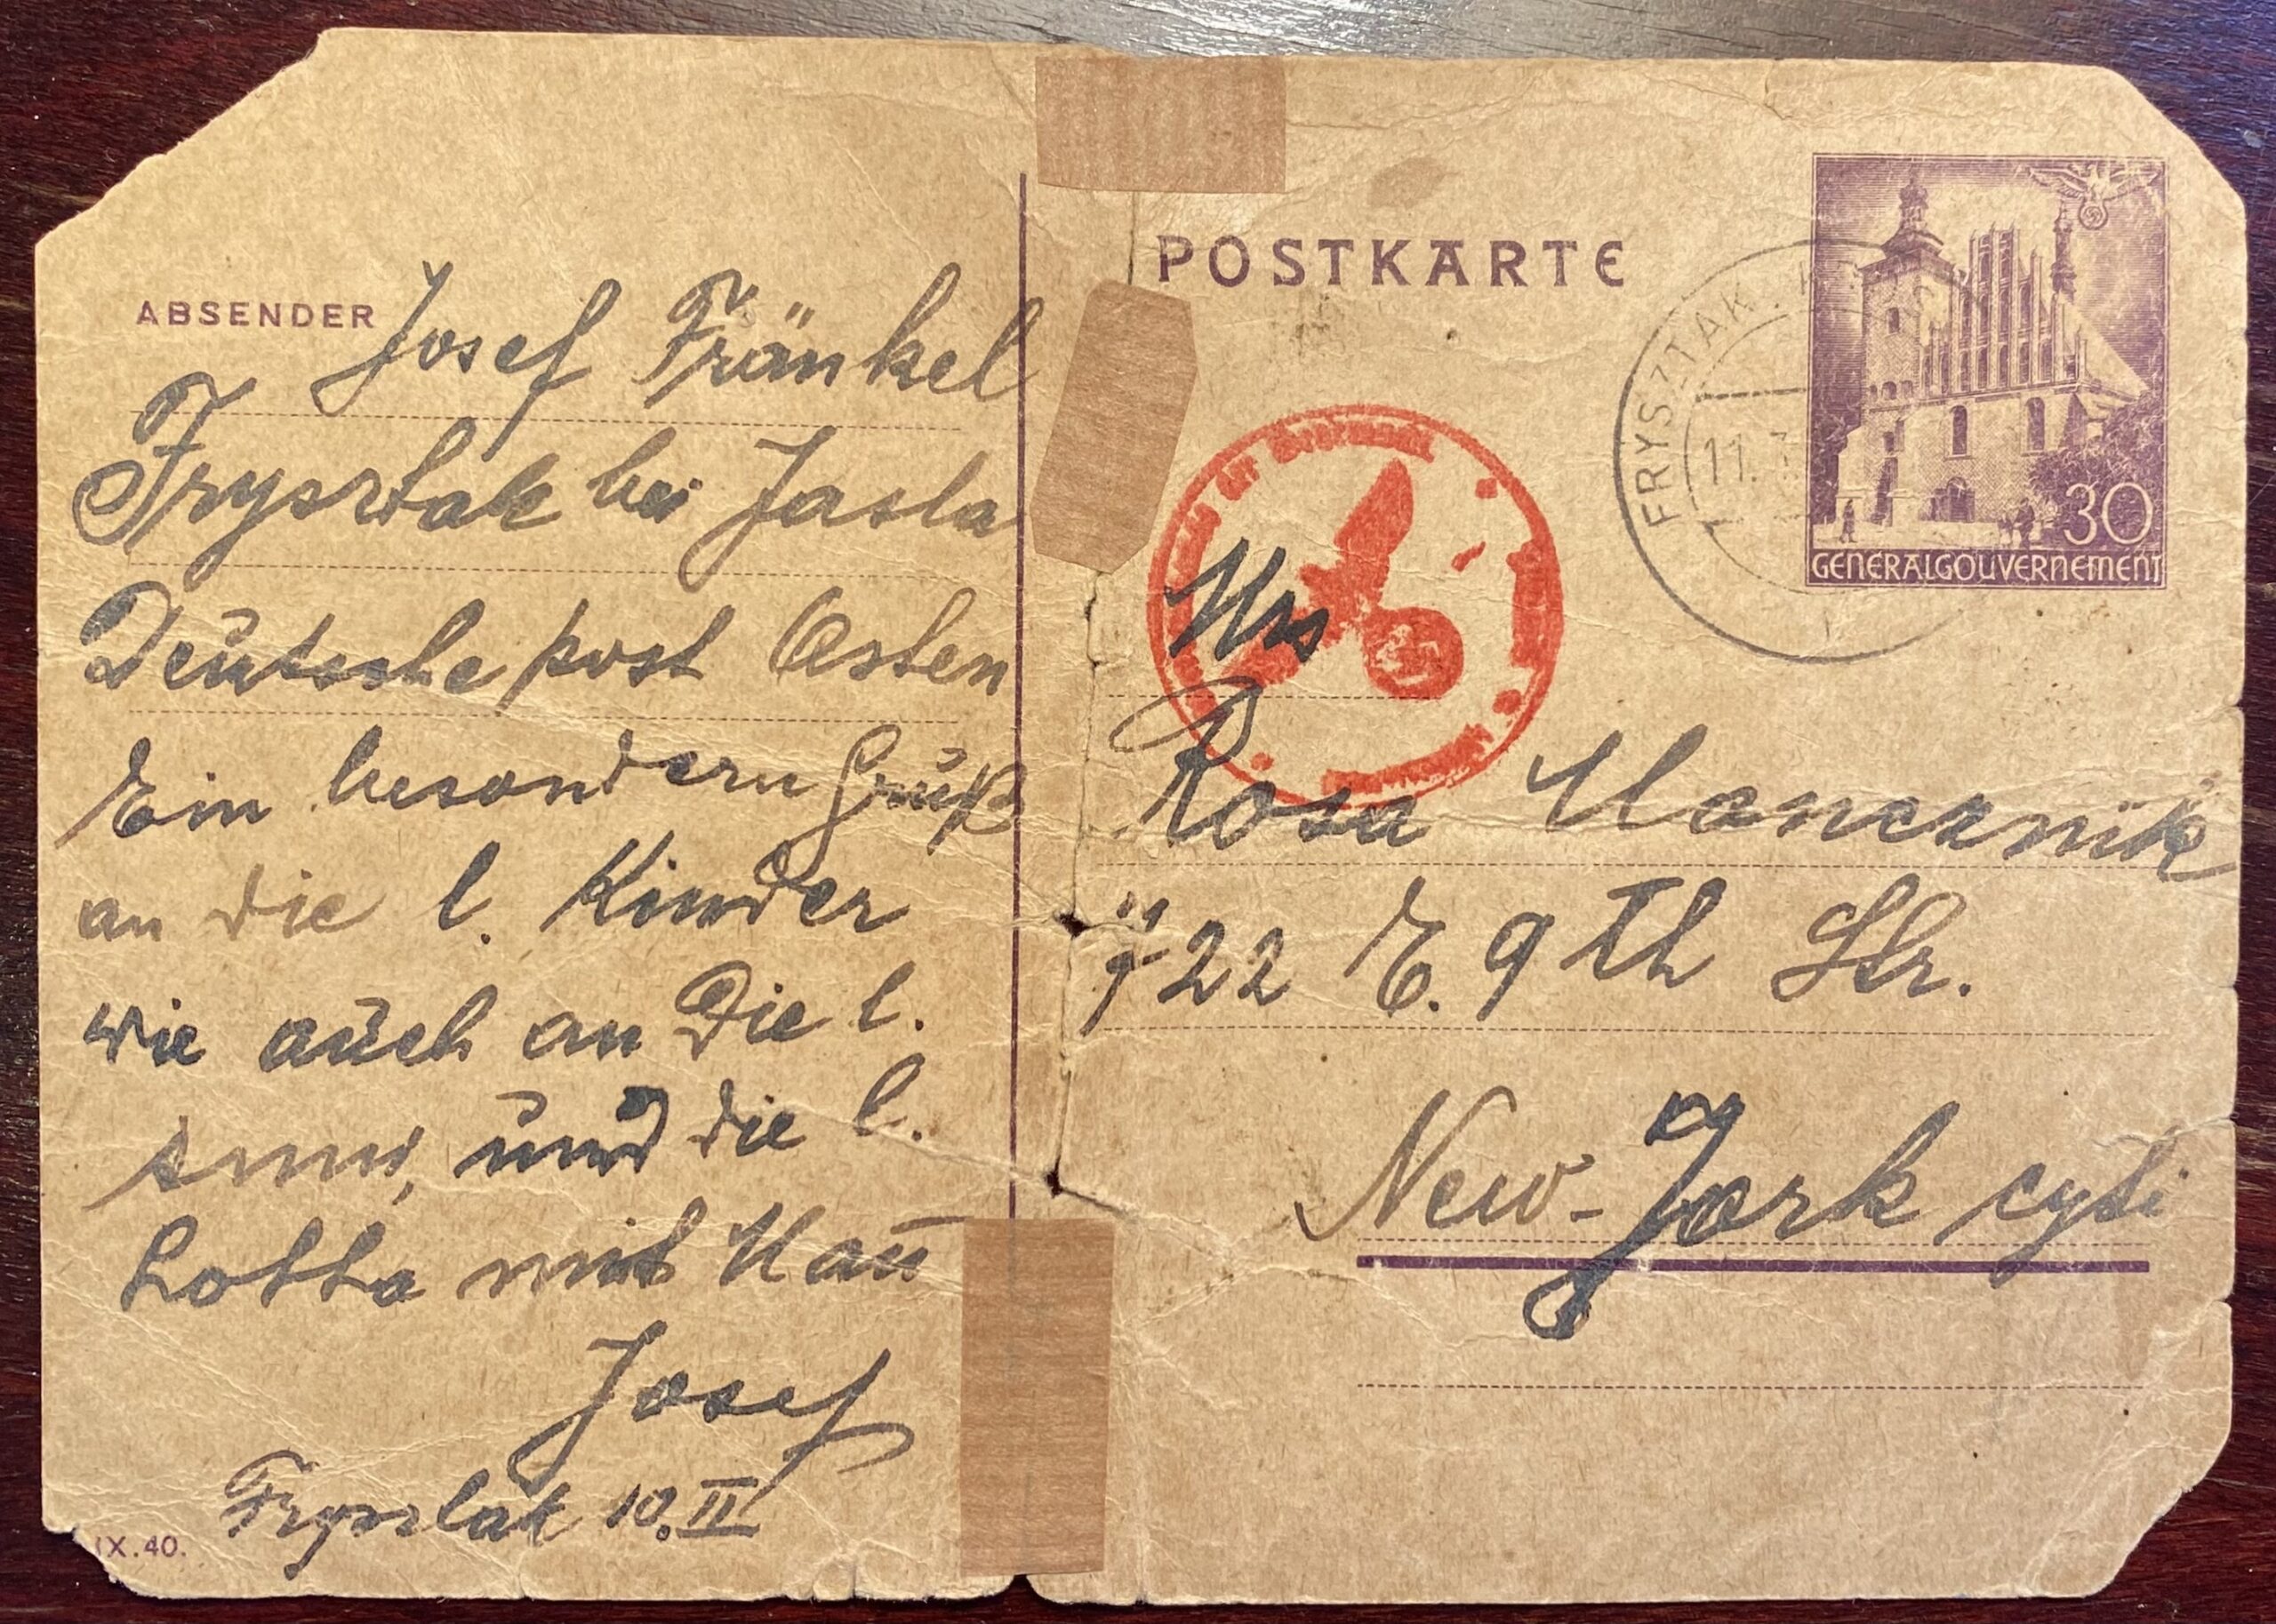 ABSENDER Josef Fränkel
Frysztak bei Jasla
Deutsche post Osten
Ein besondern Gruß
an die l. Kinder
wie auch an die l.
und die l.
Lotta mit
Josef
Frysztak 10.II
IX.40.
POSTKARTE
FRYSZTAK
11.
30
GENERALGOUVERNEMENT
Mrs
Rosa
722 E. 9 Th Str.
New-York cyti